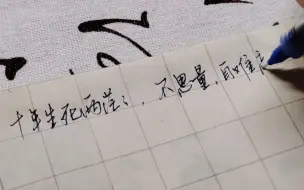 十年生死两茫〻,不思量,自难